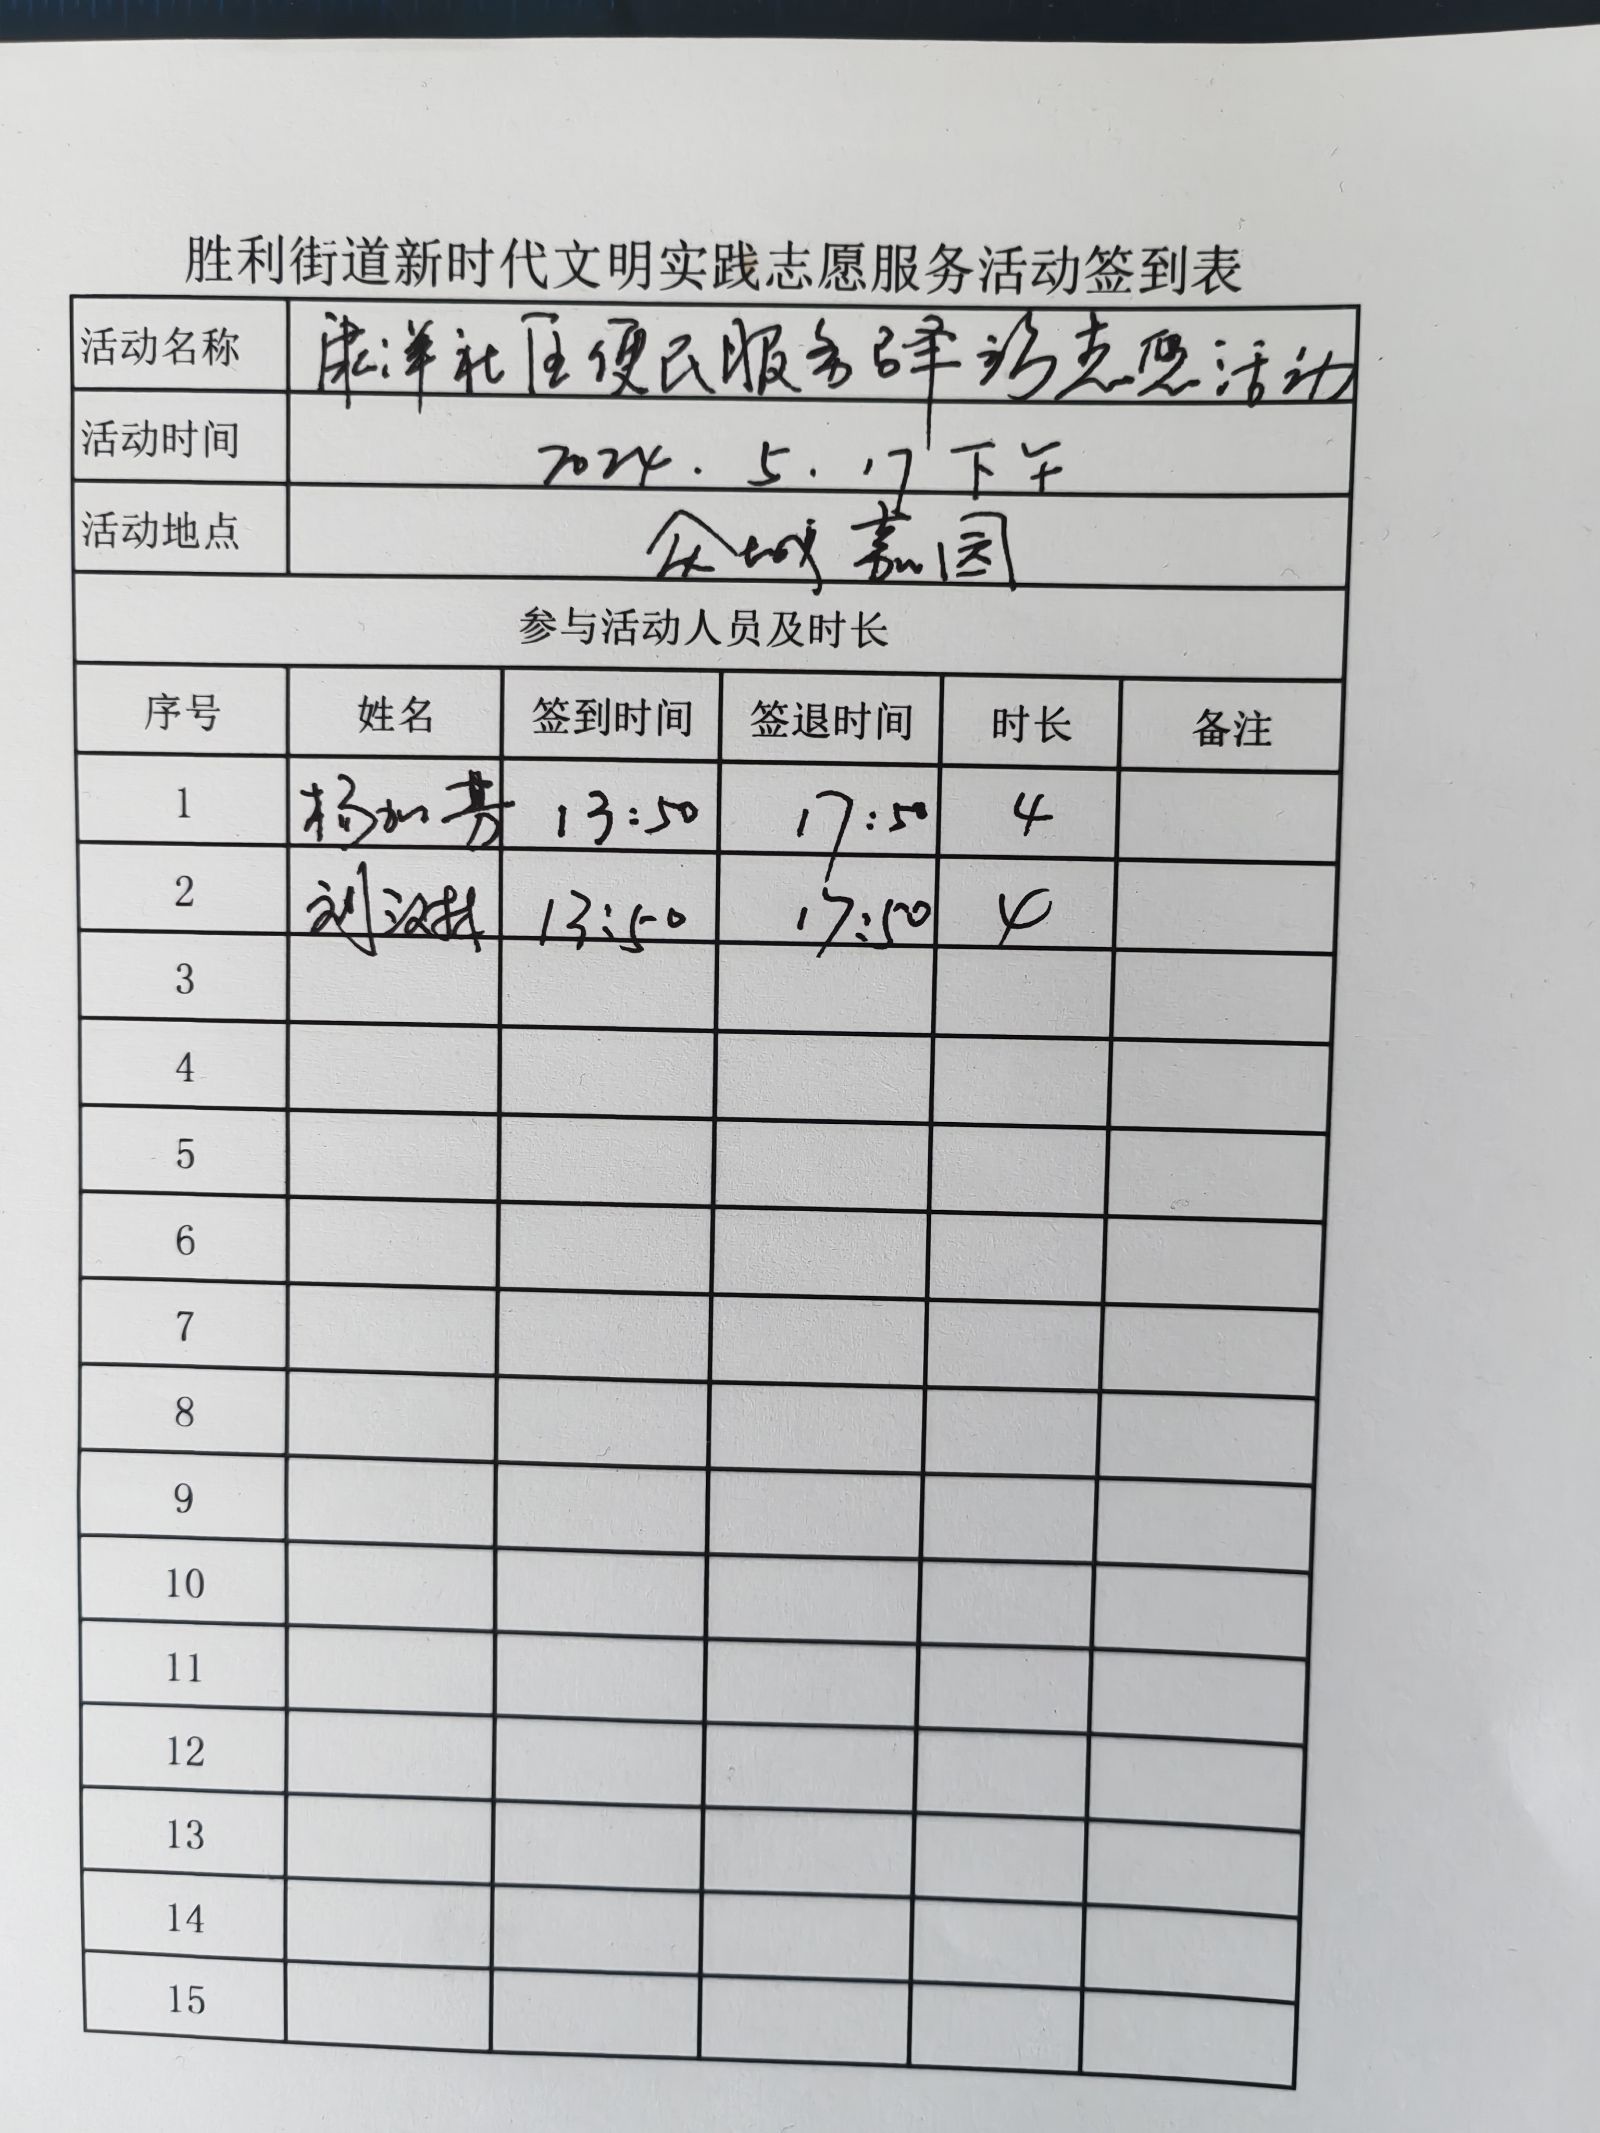 胜利街道新时代文明实践志愿服务活动签到表
活动名称 康洋社区便民服务驿站志愿活动
活动时间 2024.5.17下午
活动地点 众城嘉园
参与活动人员及时长
序号 姓名 签到时间 签退时间 时长 备注
1 杨如芳 13:50 17:50 4
2 刘 13:50 17:50 4
3
4
5
6
7
8
9
10
11
12
13
14
15